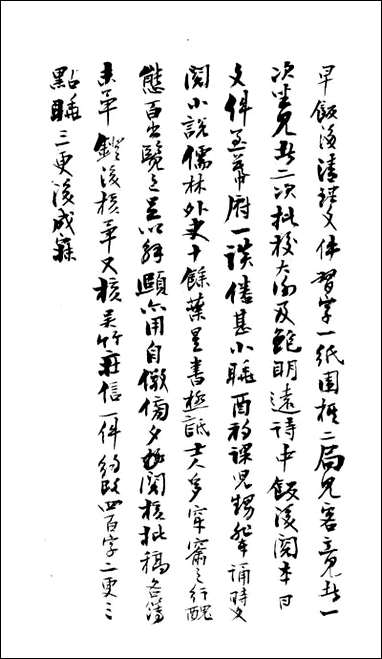 早飯後清理文件習字一紙圍棋二局見客立見者一
次坐見者二次批校太白及鮑明遠詩中飯後閱本日
文件至幕府一談倦甚小睡酉初課兒甥輩誦時文
閱小說儒林外史十餘葉是書極詆士人多穿窬之行醜
態百出覽之足以解頤亦用自儆傍夕又閱核批稿各簿
未畢燈後核畢又核吳竹莊信一件約改四百字二更三
點睡三更後成寐